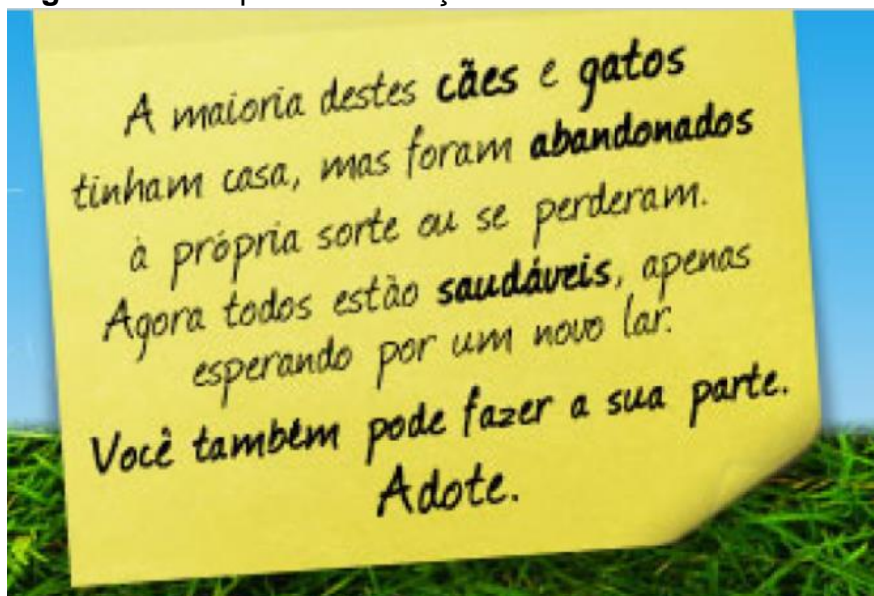 A maioria destes cães e gatos
tinham casa, mas foram abandonados
à própria sorte ou se perderam.
Agora todos estão saudáveis, apenas
esperando por um novo lar.
Você também pode fazer a sua parte.
Adote.